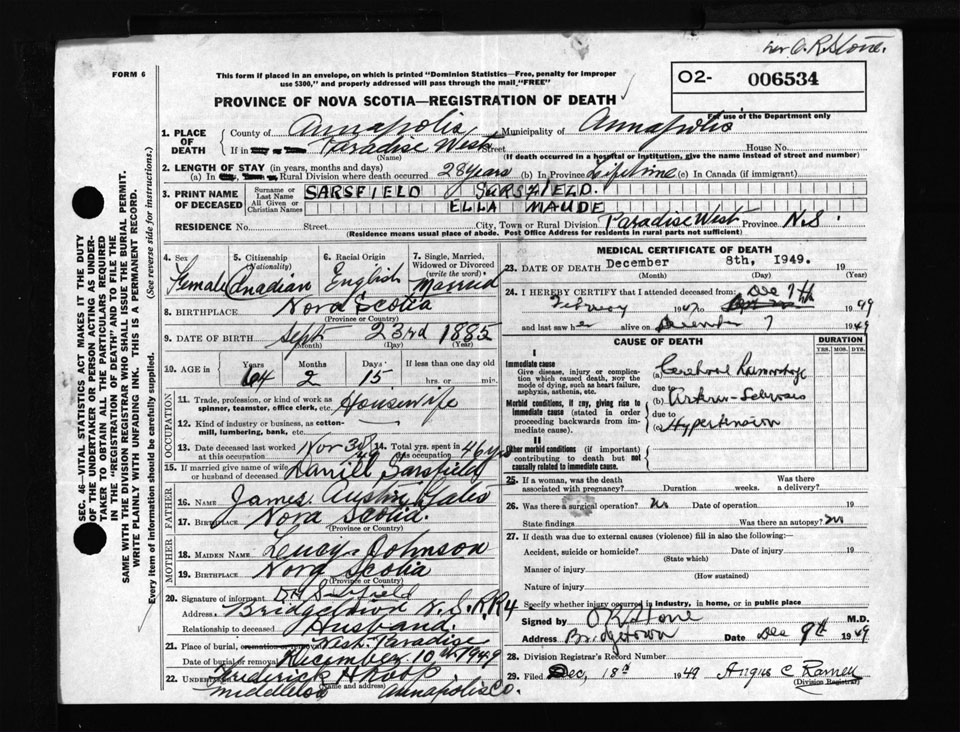 per O. R. Stone.
FORM 6
This form if placed in an envelope, on which is printed "Dominion Statistics—Free, penalty for improper
use $300," and properly addressed will pass through the mail "FREE"
O2- 006534
PROVINCE OF NOVA SCOTIA—REGISTRATION OF DEATH
For use of the Department only
1. PLACE OF DEATH
County of Annapolis Municipality of Annapolis
If in Paradise West Street House No.
(Name) (If death occurred in a hospital or institution, give the name instead of street and number)
2. LENGTH OF STAY (in years, months and days)
(a) In Rural Division where death occurred 28 years (b) In Province Lifetime (c) In Canada (if immigrant)
3. PRINT NAME OF DECEASED
Surname or Last Name SARSFIELD SARSFIELD.
All Given or Christian Names ELLA MAUDE
RESIDENCE No. Street City, Town or Rural Division Paradise West Province N.S.
(Residence means usual place of abode. Post Office Address for residents in rural parts not sufficient)
4. Sex Female
5. Citizenship (Nationality) Canadian
6. Racial Origin English
7. Single, Married, Widowed or Divorced (write the word) Married
8. BIRTHPLACE Nova Scotia
(Province or Country)
9. DATE OF BIRTH Sept 23rd 1885
(Month) (Day) (Year)
10. AGE in Years 64 Months 2 Days 15 If less than one day old
hrs. or min.
OCCUPATION
11. Trade, profession or kind of work as spinner, teamster, office clerk, etc. Housewife
12. Kind of industry or business, as cotton-mill, lumbering, bank, etc.
13. Date deceased last worked at this occupation Nov 30 49 14. Total yrs. spent in this occupation 46 yrs
15. If married give name of wife or husband of deceased Daniel Sarsfield
FATHER
16. NAME James Austin
17. BIRTHPLACE Nova Scotia.
(Province or Country)
MOTHER
18. MAIDEN NAME Lucy Johnson
19. BIRTHPLACE Nova Scotia
(Province or Country)
20. Signature of informant D H Sarsfield
Address Bridgetown N.S. R.R 4
Relationship to deceased Husband.
21. Place of burial, cremation or removal West Paradise
Date of burial or removal December 10th 1949
22. Undertaker Frederick H Roop
(Name and address)
Middleton Annapolis Co.
MEDICAL CERTIFICATE OF DEATH
23. DATE OF DEATH December 8th, 1949. 19
(Month) (Day) (Year)
24. I HEREBY CERTIFY that I attended deceased from: Dec 7th
February 1947 to 1949
and last saw her alive on December 7 1949
CAUSE OF DEATH
DURATION
YRS. MOS. DYS.
I
Immediate cause
Give disease, injury or complication which caused death, NOT the mode of dying, such as heart failure, asphyxia, asthenia, etc.
(a) Cerebral Hemorrhage
due to
Morbid conditions, if any, giving rise to immediate cause (stated in order proceeding backwards from immediate cause).
(b) Arterio-Sclerosis
due to
(c) Hypertension
II
Other morbid conditions (if important) contributing to death but not causally related to immediate cause.
25. If a woman, was the death associated with pregnancy? Duration weeks. Was there a delivery?
26. Was there a surgical operation? No Date of operation 19
State findings Was there an autopsy? No
27. If death was due to external causes (violence) fill in also the following:
Accident, suicide or homicide? Date of injury 19
(State which)
Manner of injury
(How sustained)
Nature of injury
Specify whether injury occurred in industry, in home, or in public place
Signed by O R Stone M.D.
Address Bridgetown Date Dec 9th 1949
28. Division Registrar's Record Number
29. Filed Dec, 18th 1949 Angus C
(Division Registrar)
SEC. 46—VITAL STATISTICS ACT MAKES IT THE DUTY
OF THE UNDERTAKER OR PERSON ACTING AS UNDER-
TAKER TO OBTAIN ALL THE PARTICULARS REQUIRED
IN THE "REGISTRATION OF DEATH" AND TO FILE THE
SAME WITH THE DIVISION REGISTRAR WHO SHALL ISSUE THE BURIAL PERMIT.
WRITE PLAINLY WITH UNFADING INK. THIS IS A PERMANENT RECORD.
Every item of information should be carefully supplied. (See reverse side for instructions.)